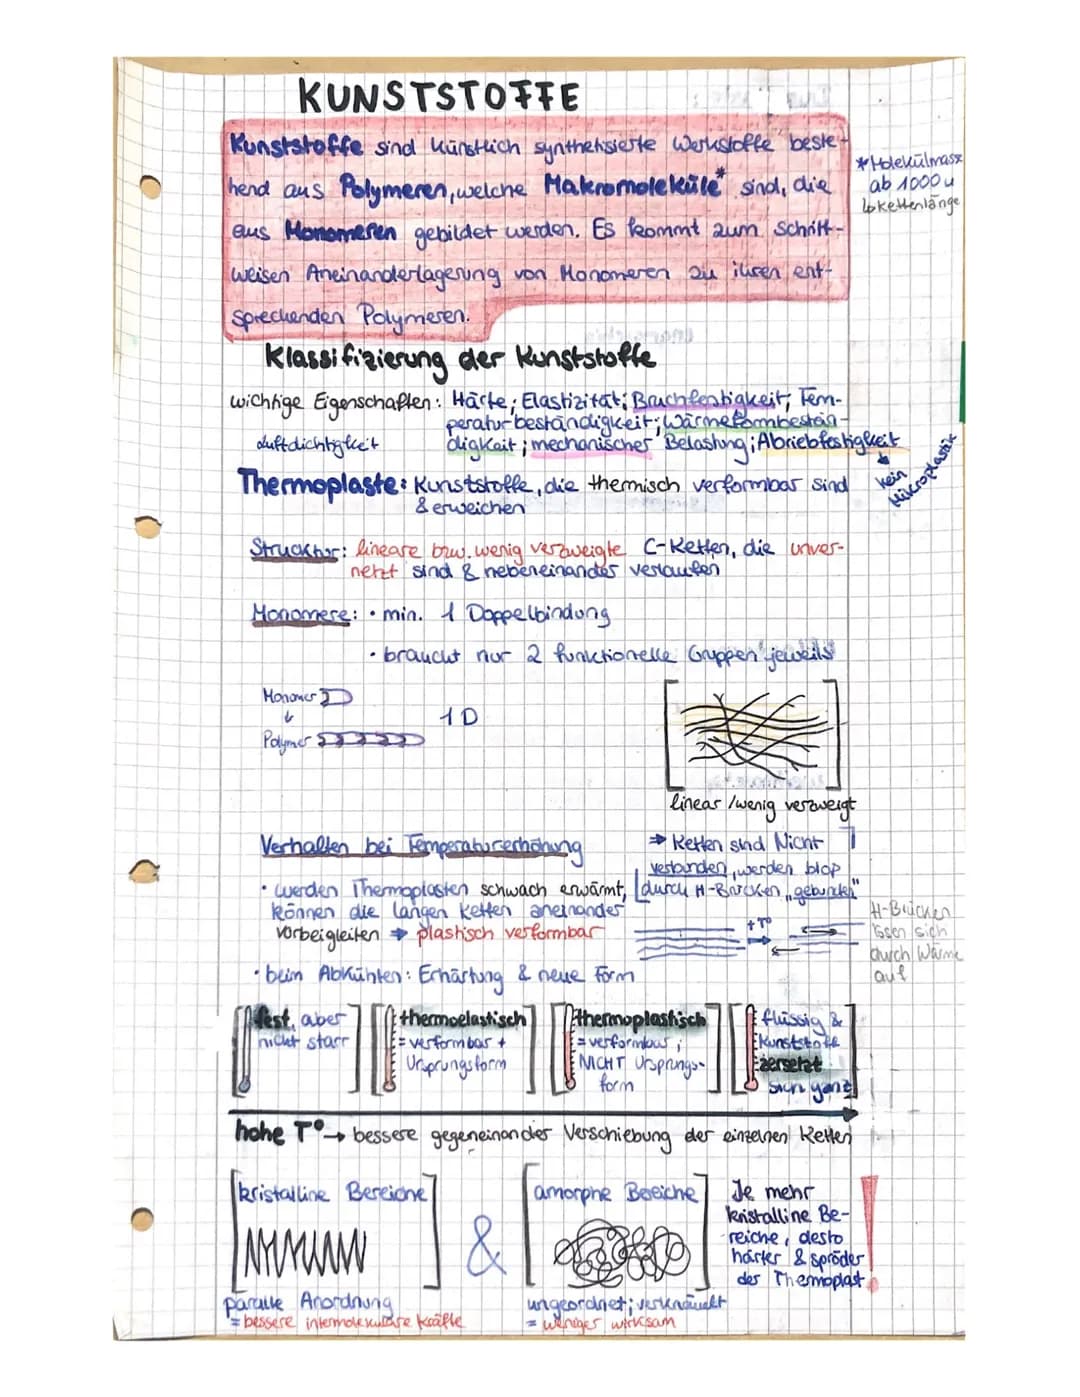 KUNSTSTOFFE
Kunststoffe sind künstlich synthetisierte Werkstoffe beste-
hend aus Polymeren, welche Makromoleküle* sind, die
aus Monomeren gebildet werden. Es kommt zum Schritt-
weisen Aneinanderlagerung von Monomeren zu ihren ent-
sprechenden Polymeren.
*Molekülmasse
ab 1000 u
↳ Kettenlänge
Klassifizierung der Kunststoffe
wichtige Eigenschaften: Härte; Elastizität; Bruchfestigkeit; Tem-
peraturbeständigkeit; Wärmeformbestän-
luftdichtigkeit
digkeit; mechanischer Belastung; Abriebfestigkeit
↓ kein
Mikroplastik
Thermoplaste: Kunststoffe, die thermisch verformbar sind
& erweichen
Struktur: lineare bzw. wenig verzweigte C-Ketten, die unver-
netzt sind & nebeneinander verlaufen
Monomere: • min. 1 Doppelbindung
• braucht nur 2 funktionelle Gruppen jeweils
Monomer
↓
Polymer
1D
linear / wenig verzweigt
⇒ Ketten sind Nicht
verbunden, werden bloß
durch H-Brücken „gebunden"
Verhalten bei Temperaturerhöhung
• werden Thermoplasten schwach erwärmt,
können die langen Ketten aneinander
vorbeigleiten → plastisch verformbar
+T°
H-Brücken
lösen sich
durch Wärme
auf
• beim Abkühlen: Erhärtung & neue Form
fest, aber
nicht starr
thermoelastisch
= verformbar +
Ursprungsform
thermoplastisch
= verformbar;
NICHT Ursprungs-
form
flüssig &
Kunststoffe
zersetzt
sich ganz
hohe T° → bessere gegeneinander Verschiebung der einzelnen Ketten
kristalline Bereiche
&
amorphe Bereiche
paralle Anordnung
= bessere intermolekulare Kräfte
ungeordnet; verknäuelt
= weniger wirksam
Je mehr
kristalline Be-
reiche, desto
härter & spröder
der Thermoplast
!